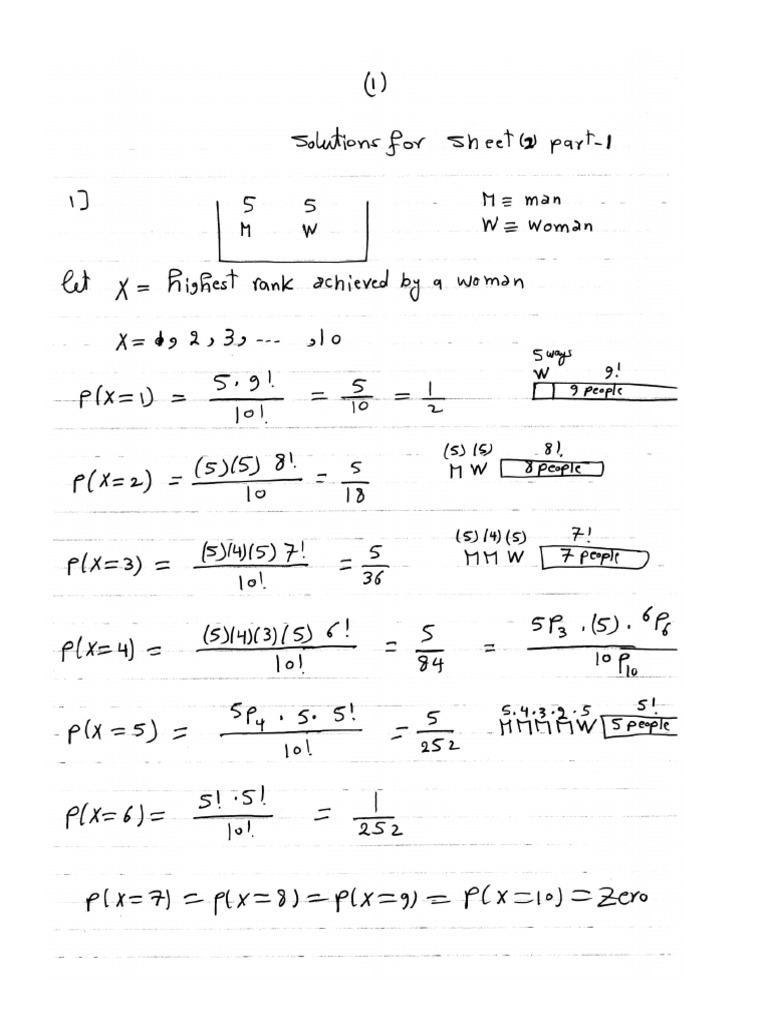 (1)
Solutions for Sheet (2) part-1
1]
5 5
M W
M ≡ man
W ≡ Woman
let X = highest rank achieved by a woman
X = 1, 2, 3, ---, 10
P(X=1) = 5·9! / 10! = 5/10 = 1/2
5 ways
W 9!
9 people
P(X=2) = (5)(5) 8! / 10 = 5/18
(5) (5) 8!
M W 8 people
P(X=3) = (5)(4)(5) 7! / 10! = 5/36
(5)(4)(5) 7!
M M W 7 people
P(X=4) = (5)(4)(3)(5) 6! / 10! = 5/84 = 5P3 · (5) · 6P6 / 10P10
P(X=5) = 5P4 · 5 · 5! / 10! = 5/252
5·4·3·2·5 5!
M M M M W 5 people
P(X=6) = 5! · 5! / 10! = 1/252
P(X=7) = P(X=8) = P(X=9) = P(X=10) = Zero